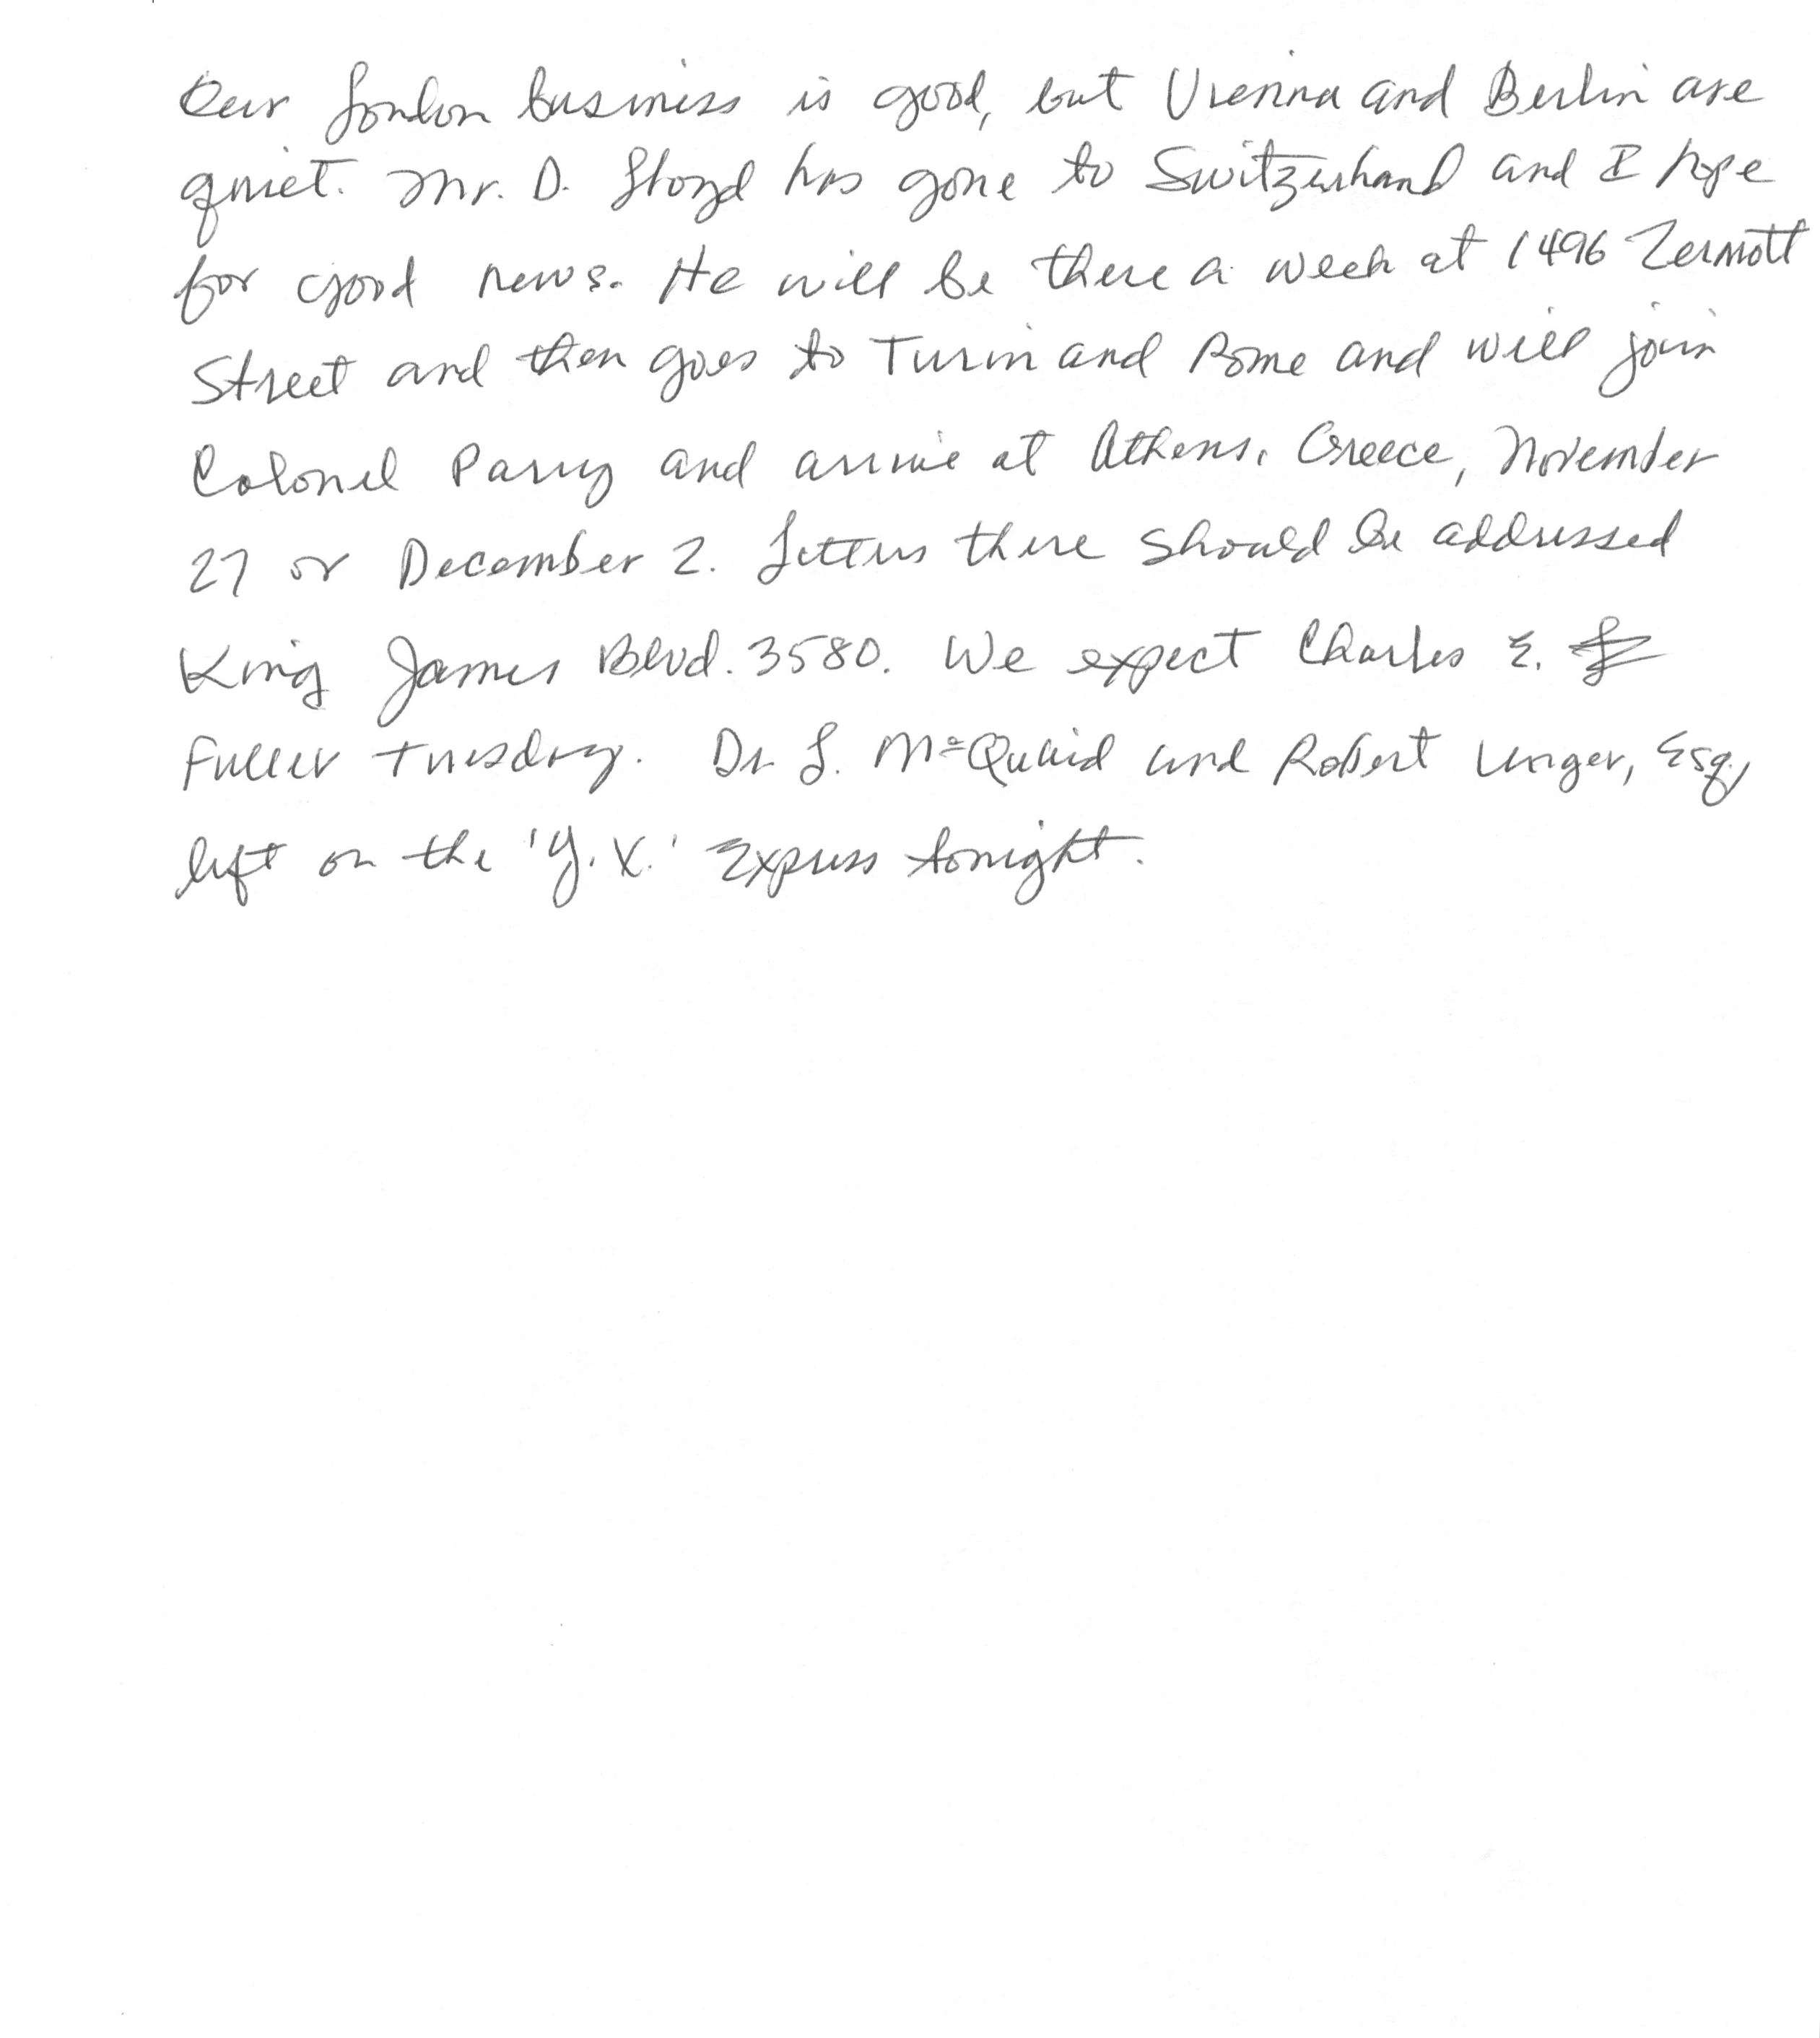 Our London business is good, but Vienna and Berlin are
quiet. Mr. D. Lloyd has gone to Switzerland and I hope
for good news. He will be there a week at 1496 Zermott
Street and then goes to Turin and Rome and will join
Colonel Parry and arrive at Athens, Greece, November
27 or December 2. Letters there should be addressed
King James Blvd. 3580. We expect Charles E.
Fuller Tuesday. Dr L. McQuaid and Robert Unger, Esq.,
left on the 'Y.X.' Express tonight.